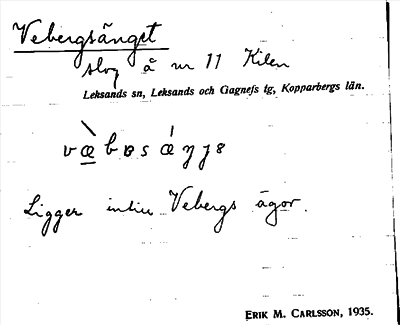 Vebergsänget
skog å nr 11 Kilen
Leksands sn, Leksands och Gagnefs tg, Kopparbergs län.
Ligger intill Vebergs ägor.
ERIK M. CARLSSON, 1935.